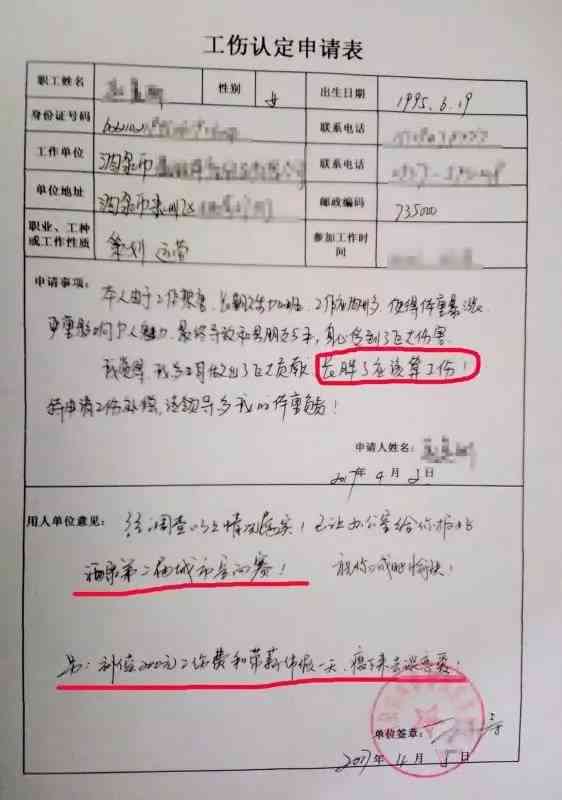 工伤认定申请表
职工姓名 性别 女 出生日期 1995.6.19
身份证号码 联系电话
工作单位 酒泉市 联系电话
单位地址 酒泉市肃州区 邮政编码 735000
职业、工种或工作性质 策划 运营 参加工作时间
申请事项:
本人由于工作 长期 加班 工作 使得体重暴涨
严重影响个人魅力 最终导致和男朋友分手,身心受到了巨大伤害.
我觉得,我为公司做出了巨大贡献,长胖了应该算工伤!
特申请工伤补偿,请领导为我的体重负责!
申请人姓名:
2017年4月2日
用人单位意见:
经调查以上情况属实!已让办公室给你报名
酒泉第二届城市 赛! 祝你减肥愉快!
另:补偿2000元工伤费和带薪休假一天,瘦下来去谈恋爱!
单位签章:
2017年4月5日